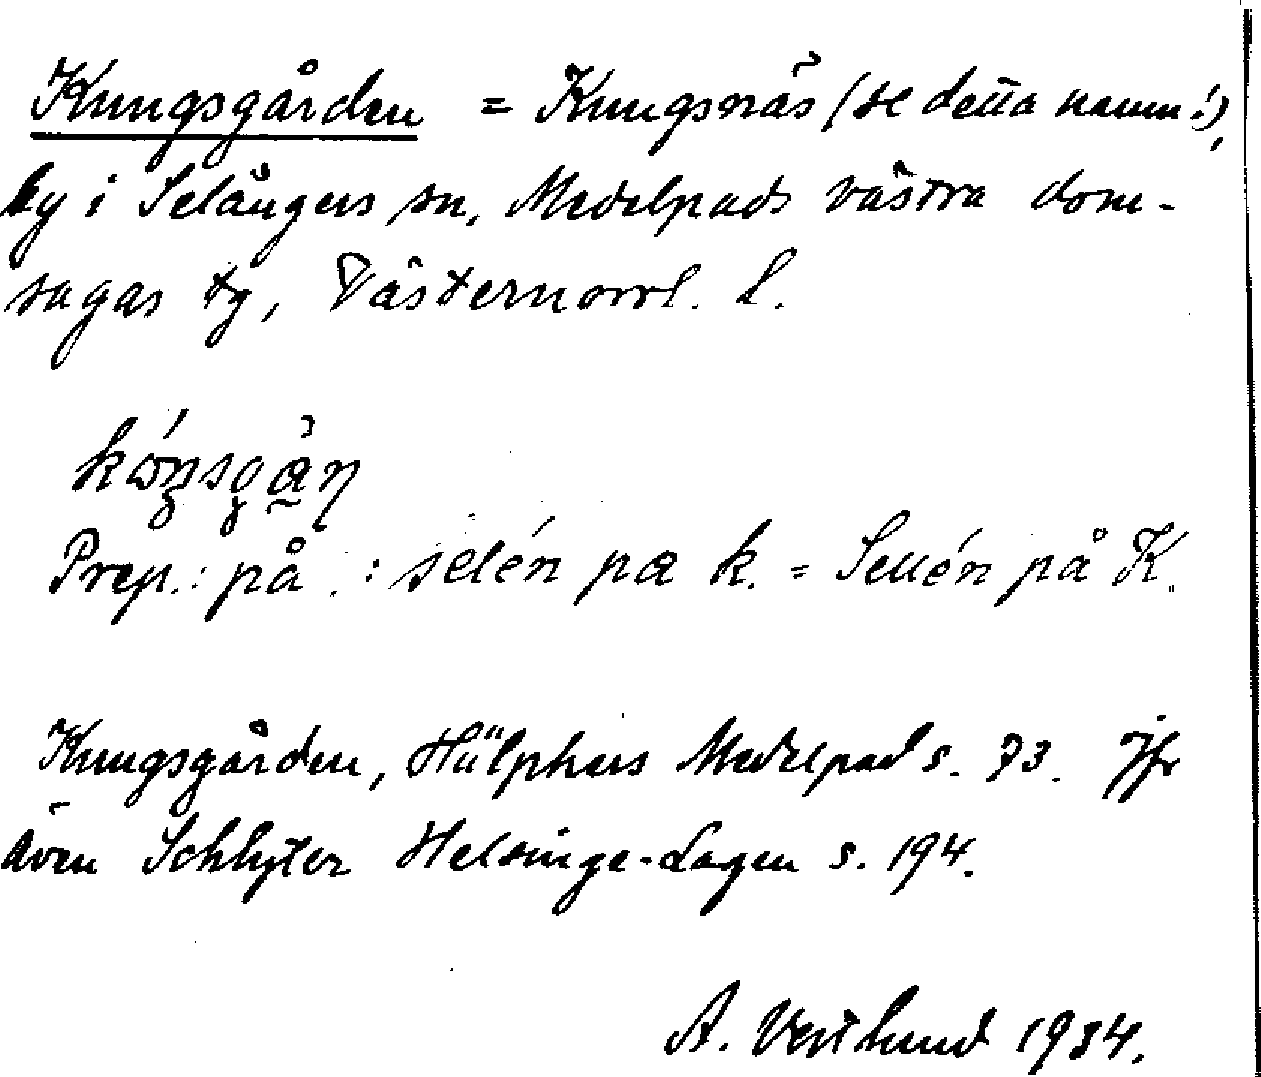 Kungsgården = Kungsnäs (se detta namn!),
by i Selångers sn, Medelpads västra dom-
sagas tg, Västernorrl. l.
Prep.: på : selén pæ k. = Sellén på K.
Kungsgården, Hülphers Medelpad s. 73. Jfr
även Schlyter Helsinge-Lagen s. 194.
A. Vestlund 1934.